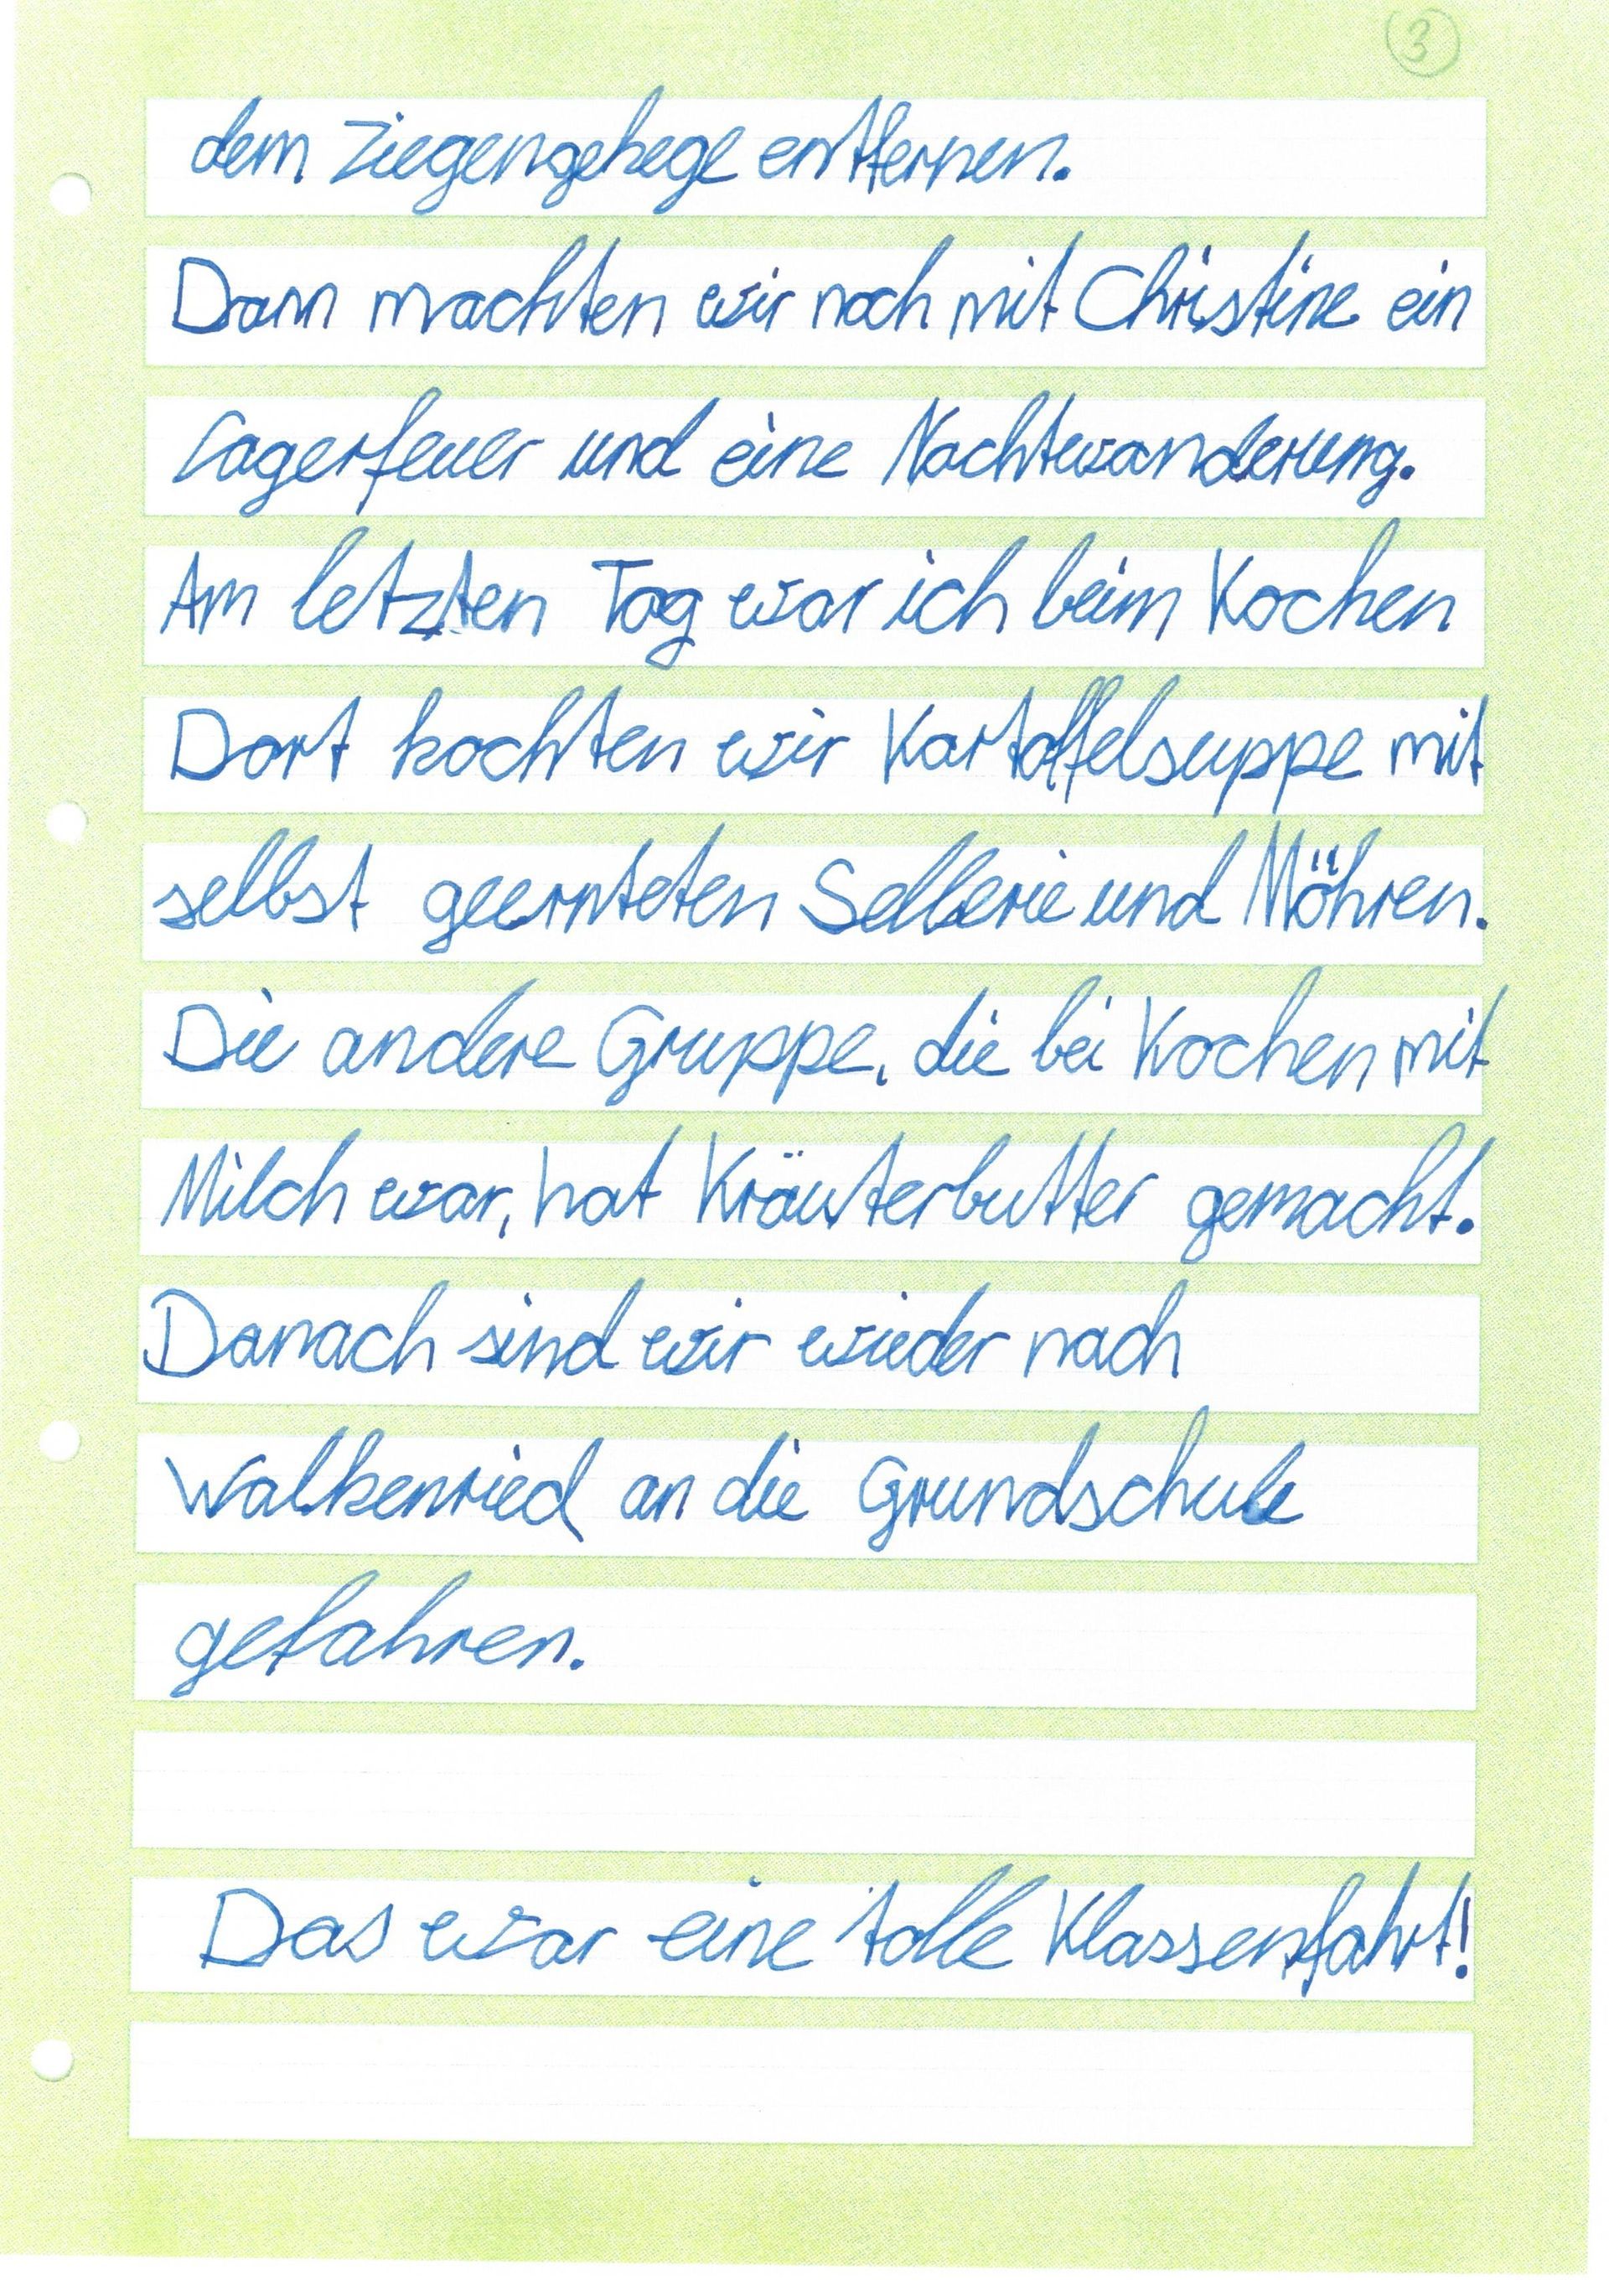 3
dem Ziegengehege entfernen.
Dann machten wir noch mit Christine ein
Lagerfeuer und eine Nachtwanderung.
Am letzten Tag war ich beim Kochen
Dort kochten wir Kartoffelsuppe mit
selbst geernteten Sellerie und Möhren.
Die andere Gruppe, die bei Kochen mit
Milch war, hat Kräuterbutter gemacht.
Danach sind wir wieder nach
Walkenried an die Grundschule
gefahren.
Das war eine tolle Klassenfahrt!